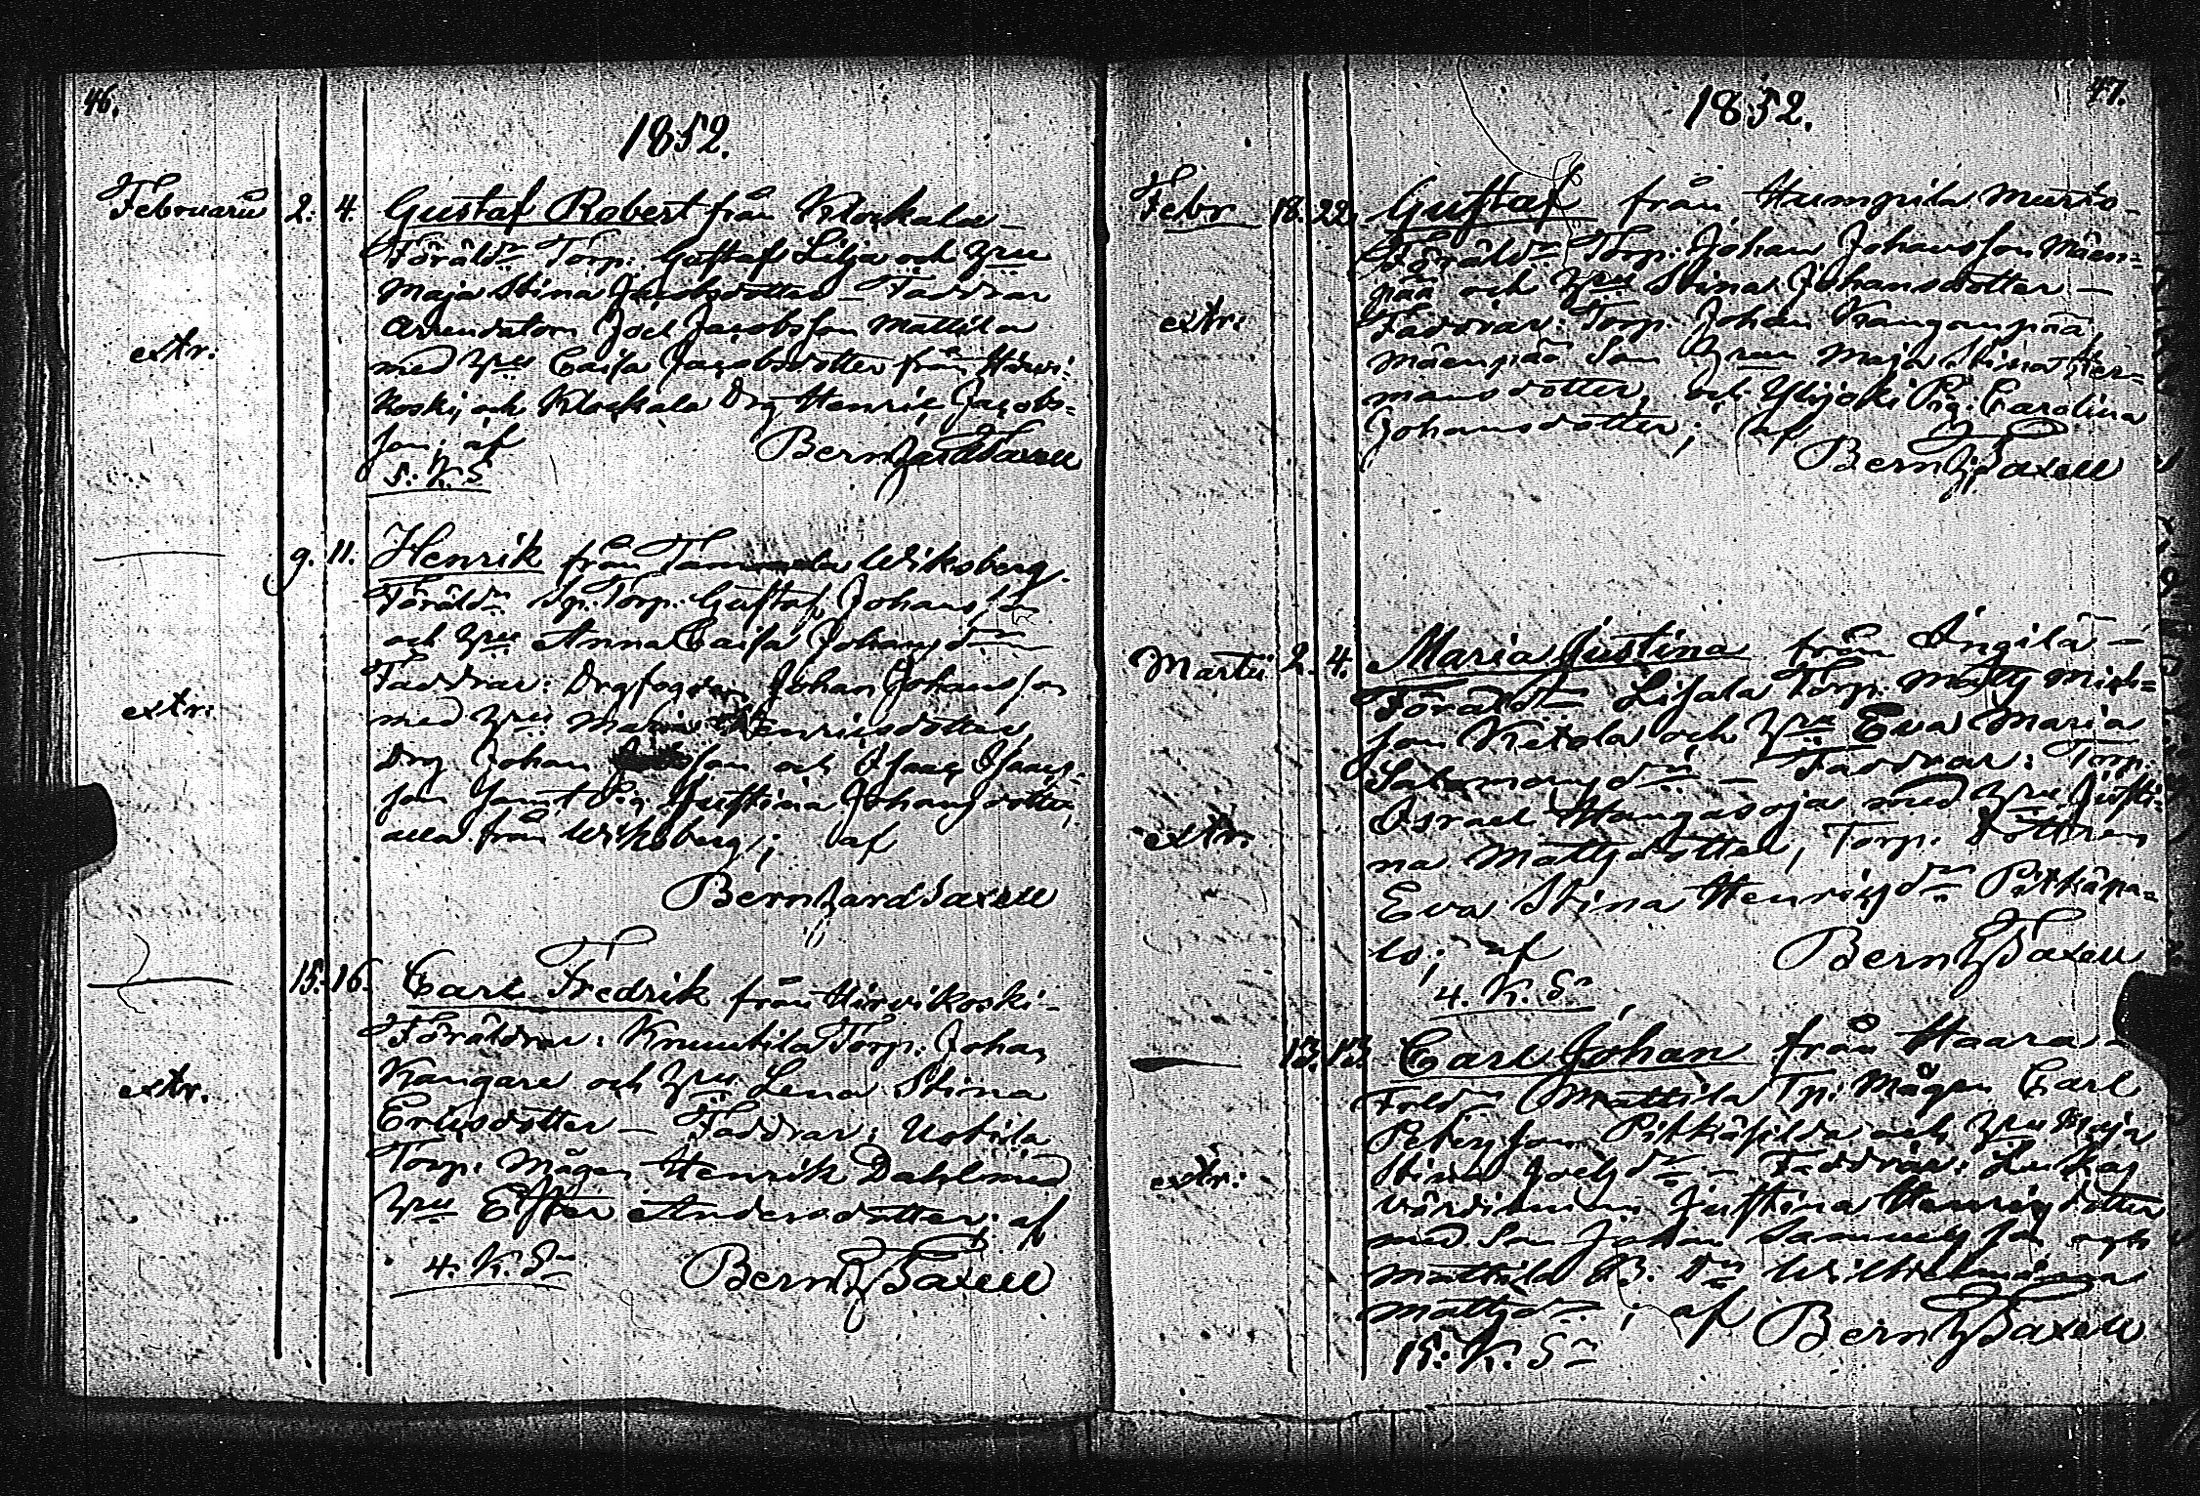 46.
1852.
Februarii 2. 4. Gustaf Robert från Klockala –
Föräldr Torp: Gustaf Lilja och Hru
Maja Stina Jacobsdotter – Faddrar
Arrendatorn Joel Jacobsson Mattila
extr.
med Hru Caisa Jacobsdotter från Hirvi-
koski och Klockala Drg Henric Jacobs-
son; af Bernhard Saxell
5. K. S
9. 11. Henrik från Tammela Wiksberg.
Föräldr Sp. Torp: Gustaf Johansson
och Hru Anna Caisa Johansdr
Faddrar: Drgfogden Johan Johansson
extr:
med Hru Maria Henricsdotter,
Drg Johan son och Isaac Isaacs-
son samt Pig. Justina Johansdotter,
alla från Wiksberg; af
Bernhard Saxell
15. 16. Carl Fredrik från Hirvikoski –
Föräldrar: Knuutila Torp: Johan
Kangare och Hru Lena Stina
extr.
Ericsdotter – Faddrar: Uotila
Torp: Mågen Henrik Dahl med
Hru Ester Andersdotter; af
4. K. Sn Bernh Saxell
47.
1852.
Febr 18. 22. Gustaf från Humpila Murto-
Föräldr Torp: Johan Johansson Mäen-
pää och Hru Stina Johansdotter –
extr:
Faddrar: Torp: Johan Kanganpää,
Mäenpää Son Hrun Maja Stina Her-
mansdotter, och Yhijoki Pig. Carolina
Johansdotter; af
Bernh Saxell
Martii 2. 4. Maria Justina från Ingilä –
Föräldr Lisala Torp: Matts Mich-
son Ketola och Hru Eva Maria
Salomonsdr – Faddrar: Torp:
extr.
Israel Hangasoja med Hru Justi-
na Mattsdotter, Torp: Dottren
Eva Stina Henricsdr Pitkäpa-
lo; af Bernh Saxell
4. K. Sn
13. 13. Carl Johan från Haara –
Foldr Mattila Tp: Mågen Carl
Petersson Pitkäsilda och Hru Maja
extr:
Stina Joelsdr – Faddrar: Lukas
värdinnan Justina Henricsdotter
med Son Johan Samuelsson och
Mattila B. Dr Wilhelmina
Mattsdr; af Bernh Saxell
15. K. Sn